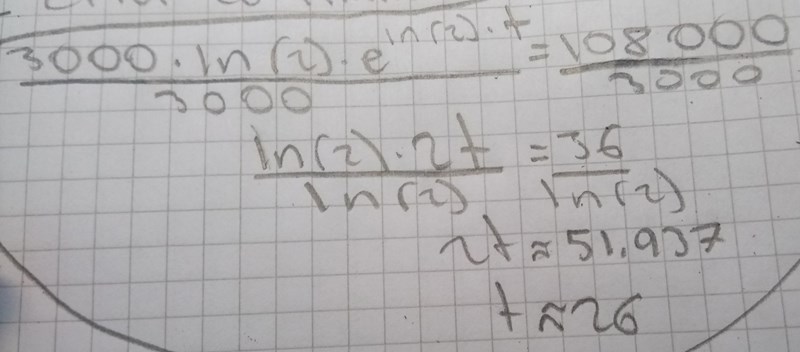 3000·ln(2)·e^ln(2)·t = 108 000
3000 3000
ln(2)·2t = 36
ln(2) ln(2)
2t ≈ 51.937
t ≈ 26